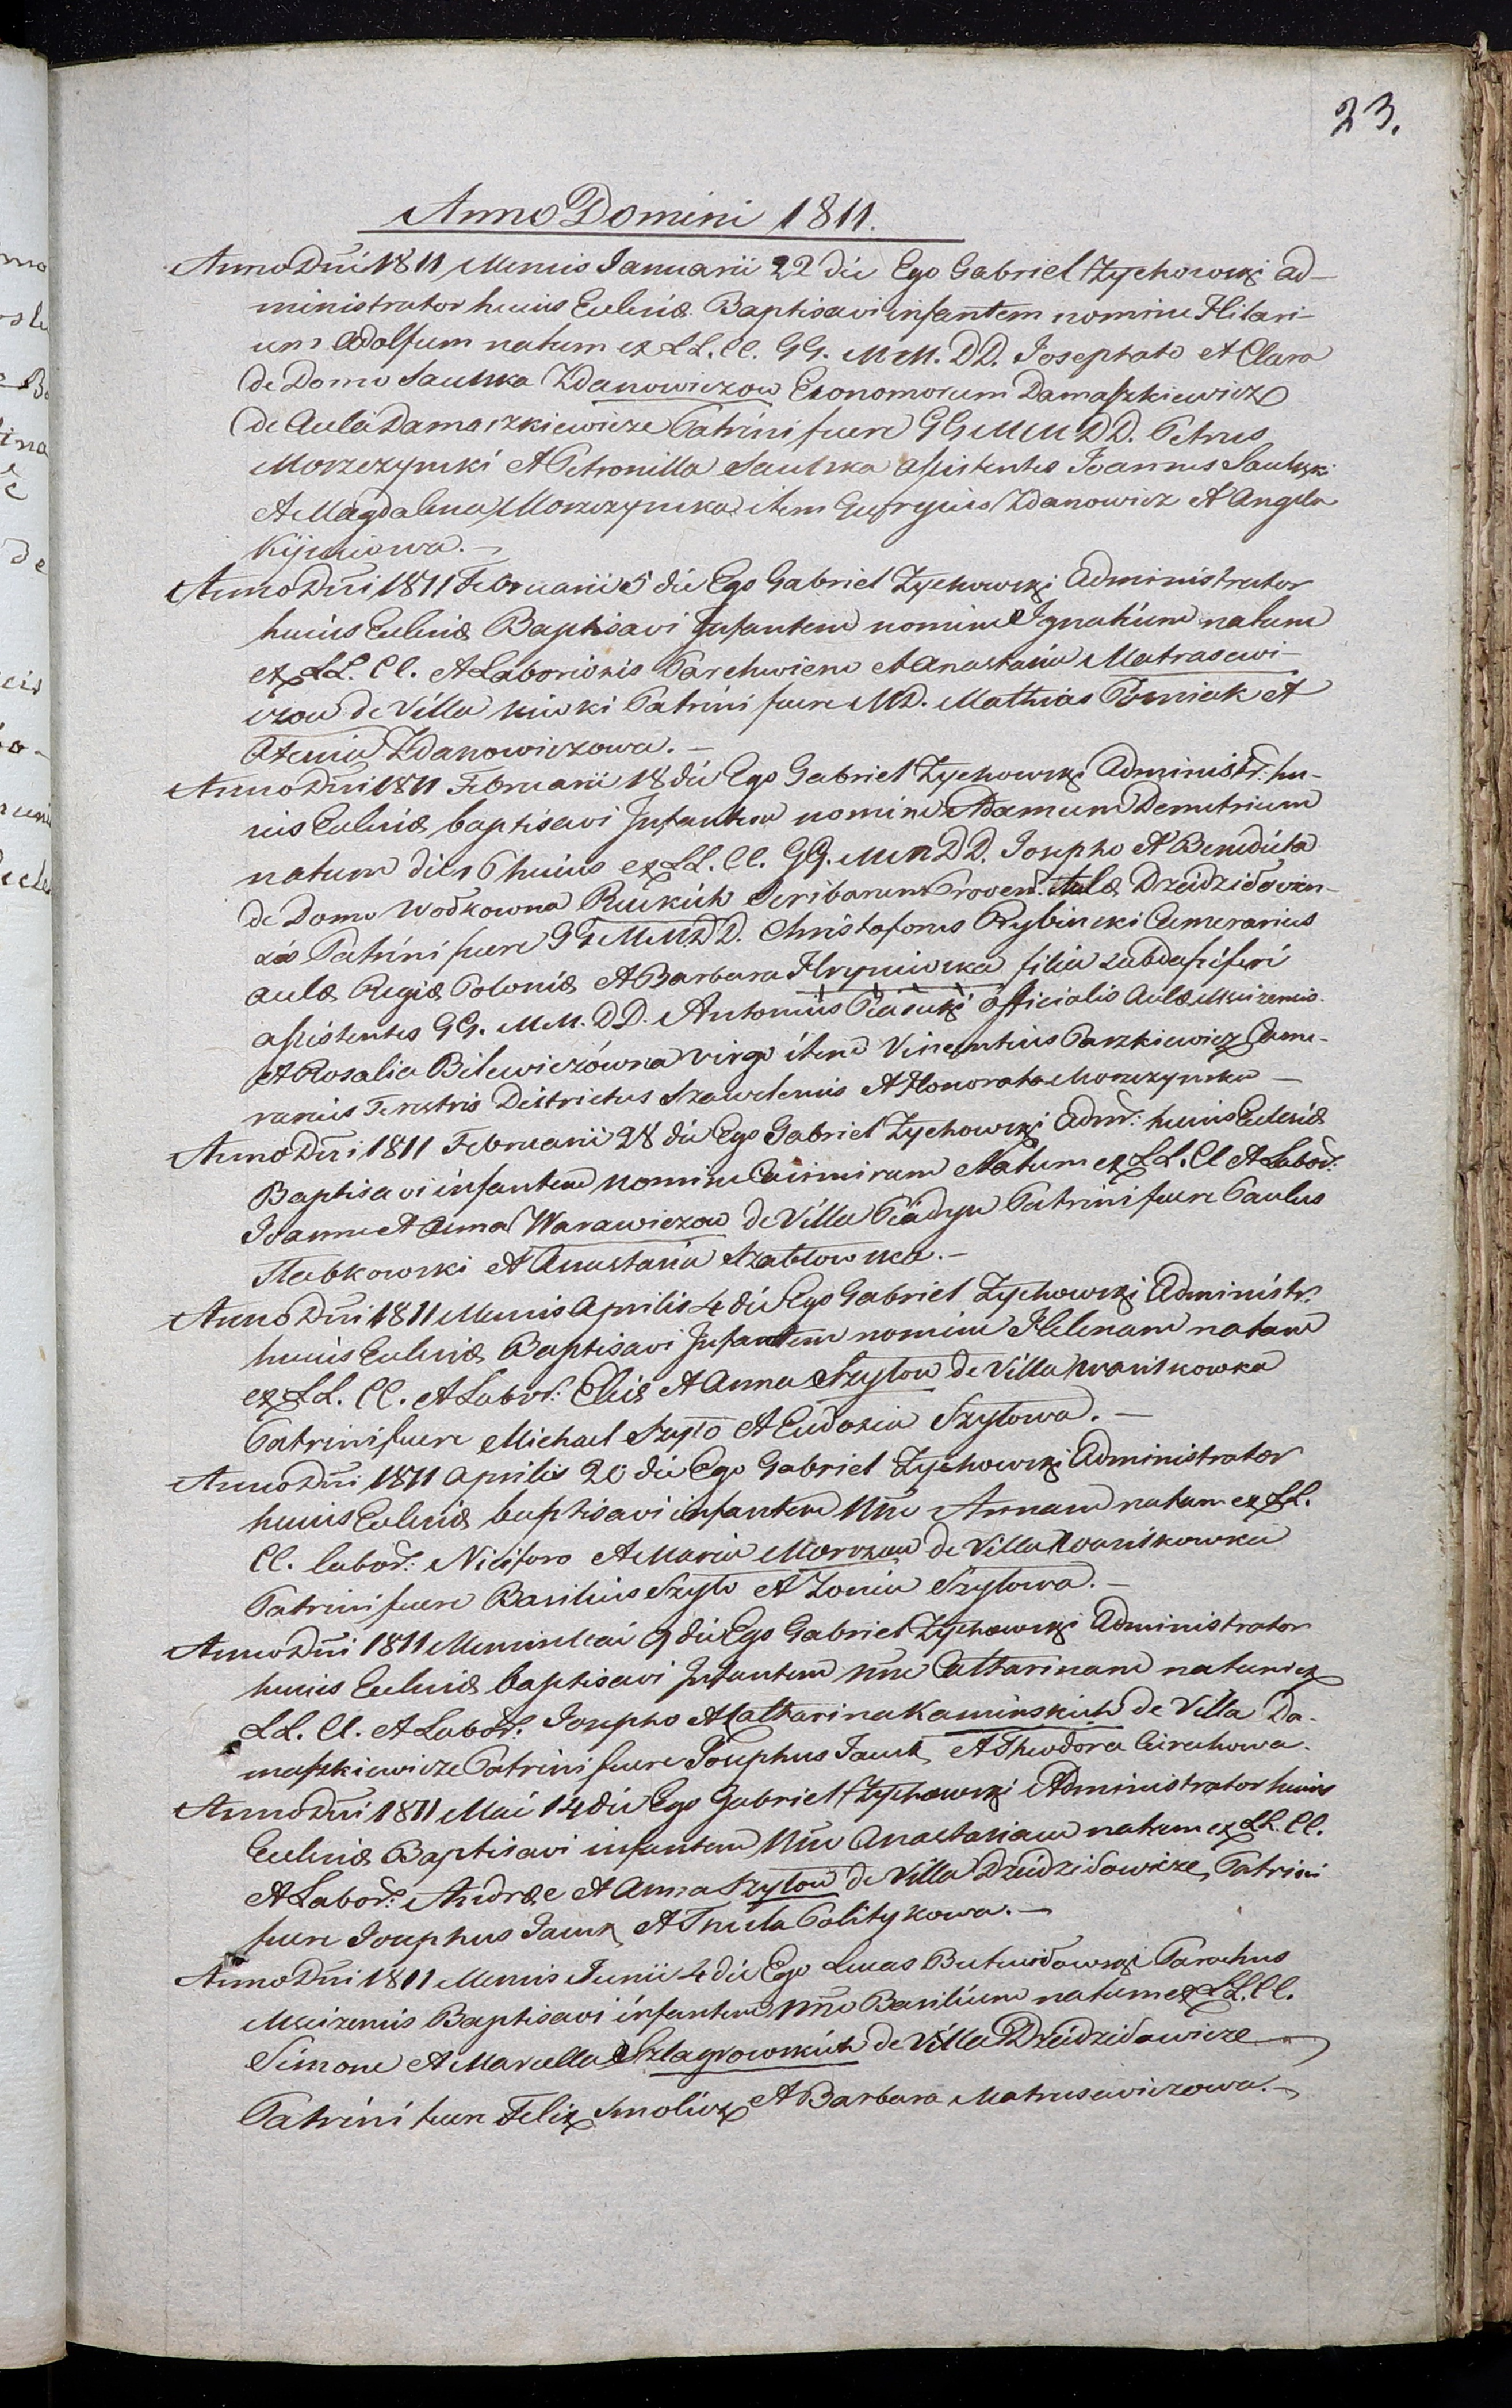 23.
Anno Domini 1811.
Anno Dni 1811 Mensis Ianuarii 22 die Ego Gabriel Zychowski ad-
ministrator huius Ecclesiæ Baptisavi infantem nomine Hilari-
um Adolfum natum ex LL. CC. GG. MM. DD. Josephato et Clara
de Domo Saulska Zdanowiczow Economorum Damaszkiewicz
de Aula Damaszkiewicze Patrini fuere GG MM DD. Petrus
Morzczynski et Petronilla Saulska assistentes Joannes Saulski
et Magdalena Morzczynska item Zdanowicz et Angela

Anno Dni 1811 Februarii 5 die Ego Gabriel Zychowski Administrator
huius Ecclesiæ Baptisavi Infantem nomine Ignatium natum
ex LL. CC. et Laboriosis Parchwiem et Anastasia Matrasewi-
czow de Villa Patrini fuere MD. Mathias et
Zdanowiczowa.
Anno Dni 1811 Februarii 18 die Ego Gabriel Zychowski Administr: hu-
ius Ecclesiæ baptisavi Infantem nomine Adamum Demetrium
natum die 16 huius ex LL. CC. GG. MM DD. Josepho et Benedicta
de Domo Wodkowna Scribarum Provent. Aulæ Dziedzilowicen-
sis Patrini fuere GG MM DD. Christoforus Rybinski Camerarius
aulæ Regiæ Poloniæ et Barbara Hryniewska filia subdapiferi
assistentes GG. MM. DD. Antonius Piasecki officialis Aulæ
et Rosalia Bilewiczówna virgo item Vincentius Paszkiewicz Came-
rarius Terestris Districtus Szawlensis et Honorata Morzczynska
Anno Dni 1811 Februarii 28 die Ego Gabriel Zychowski Admr: huius Ecclesiæ
Baptisavi infantem nomine Casimirum Natum ex LL. CC et Labor:
Joanne et Anna Warawiczow de Villa Piadyn Patrini fuere Paulus
Slabkowski et Anastasia Szablowska.
Anno Dni 1811 Mensis Aprilis 4 die Ego Gabriel Zychowski Administr.
huius Ecclesiæ Baptisavi Infantem nomine Helenam natam
ex LL. CC. et Labor: Eliæ et Anna Szylow de Villa Iwaniskowka
Patrini fuere Michael Szyło et Eudoxia Szyłowa.
Anno Dni 1811 Aprilis 20 die Ego Gabriel Zychowski Administrator
huius Ecclesiæ baptisavi infantem nne Annam natam ex LL.
CC. labor: Niciforo et Maria Morozow de Villa Iwaniskowka
Patrini fuere Basilius Szyło et Zonia Szyłowa.
Anno Dni 1811 Mensis Mai 9 die Ego Gabriel Zychowski Administrator
huius Ecclesiæ baptisavi Infantem nne Catharinam natam ex
LL. CC. et Labor: Josepho et Catharina Kaminskich de Villa Da-
maszkiewicze Patrini fuere Josephus Jauk et Theodora
Anno Dni 1811 Mai 14 die Ego Gabriel Zychowski Administrator huius
Ecclesiæ Baptisavi infantem nne Anastasiam natam ex LL. CC.
et Labor: Andræe et Anna Szyłow de Villa Dziedzilowicze, Patrini
fuere Josephus Jauk et Thecla Politykowa.
Anno Dni 1811 Mensis Junii 4 die Ego Lucas Butwidowski Parochus
Baptisavi infantem nne Basilium natum ex LL. CC.
Simone et Marcella Szlagrowskich de Villa Dziedzilowicze
Patrini fuere Felix Smolicz et Barbara Matrusewiczowa.